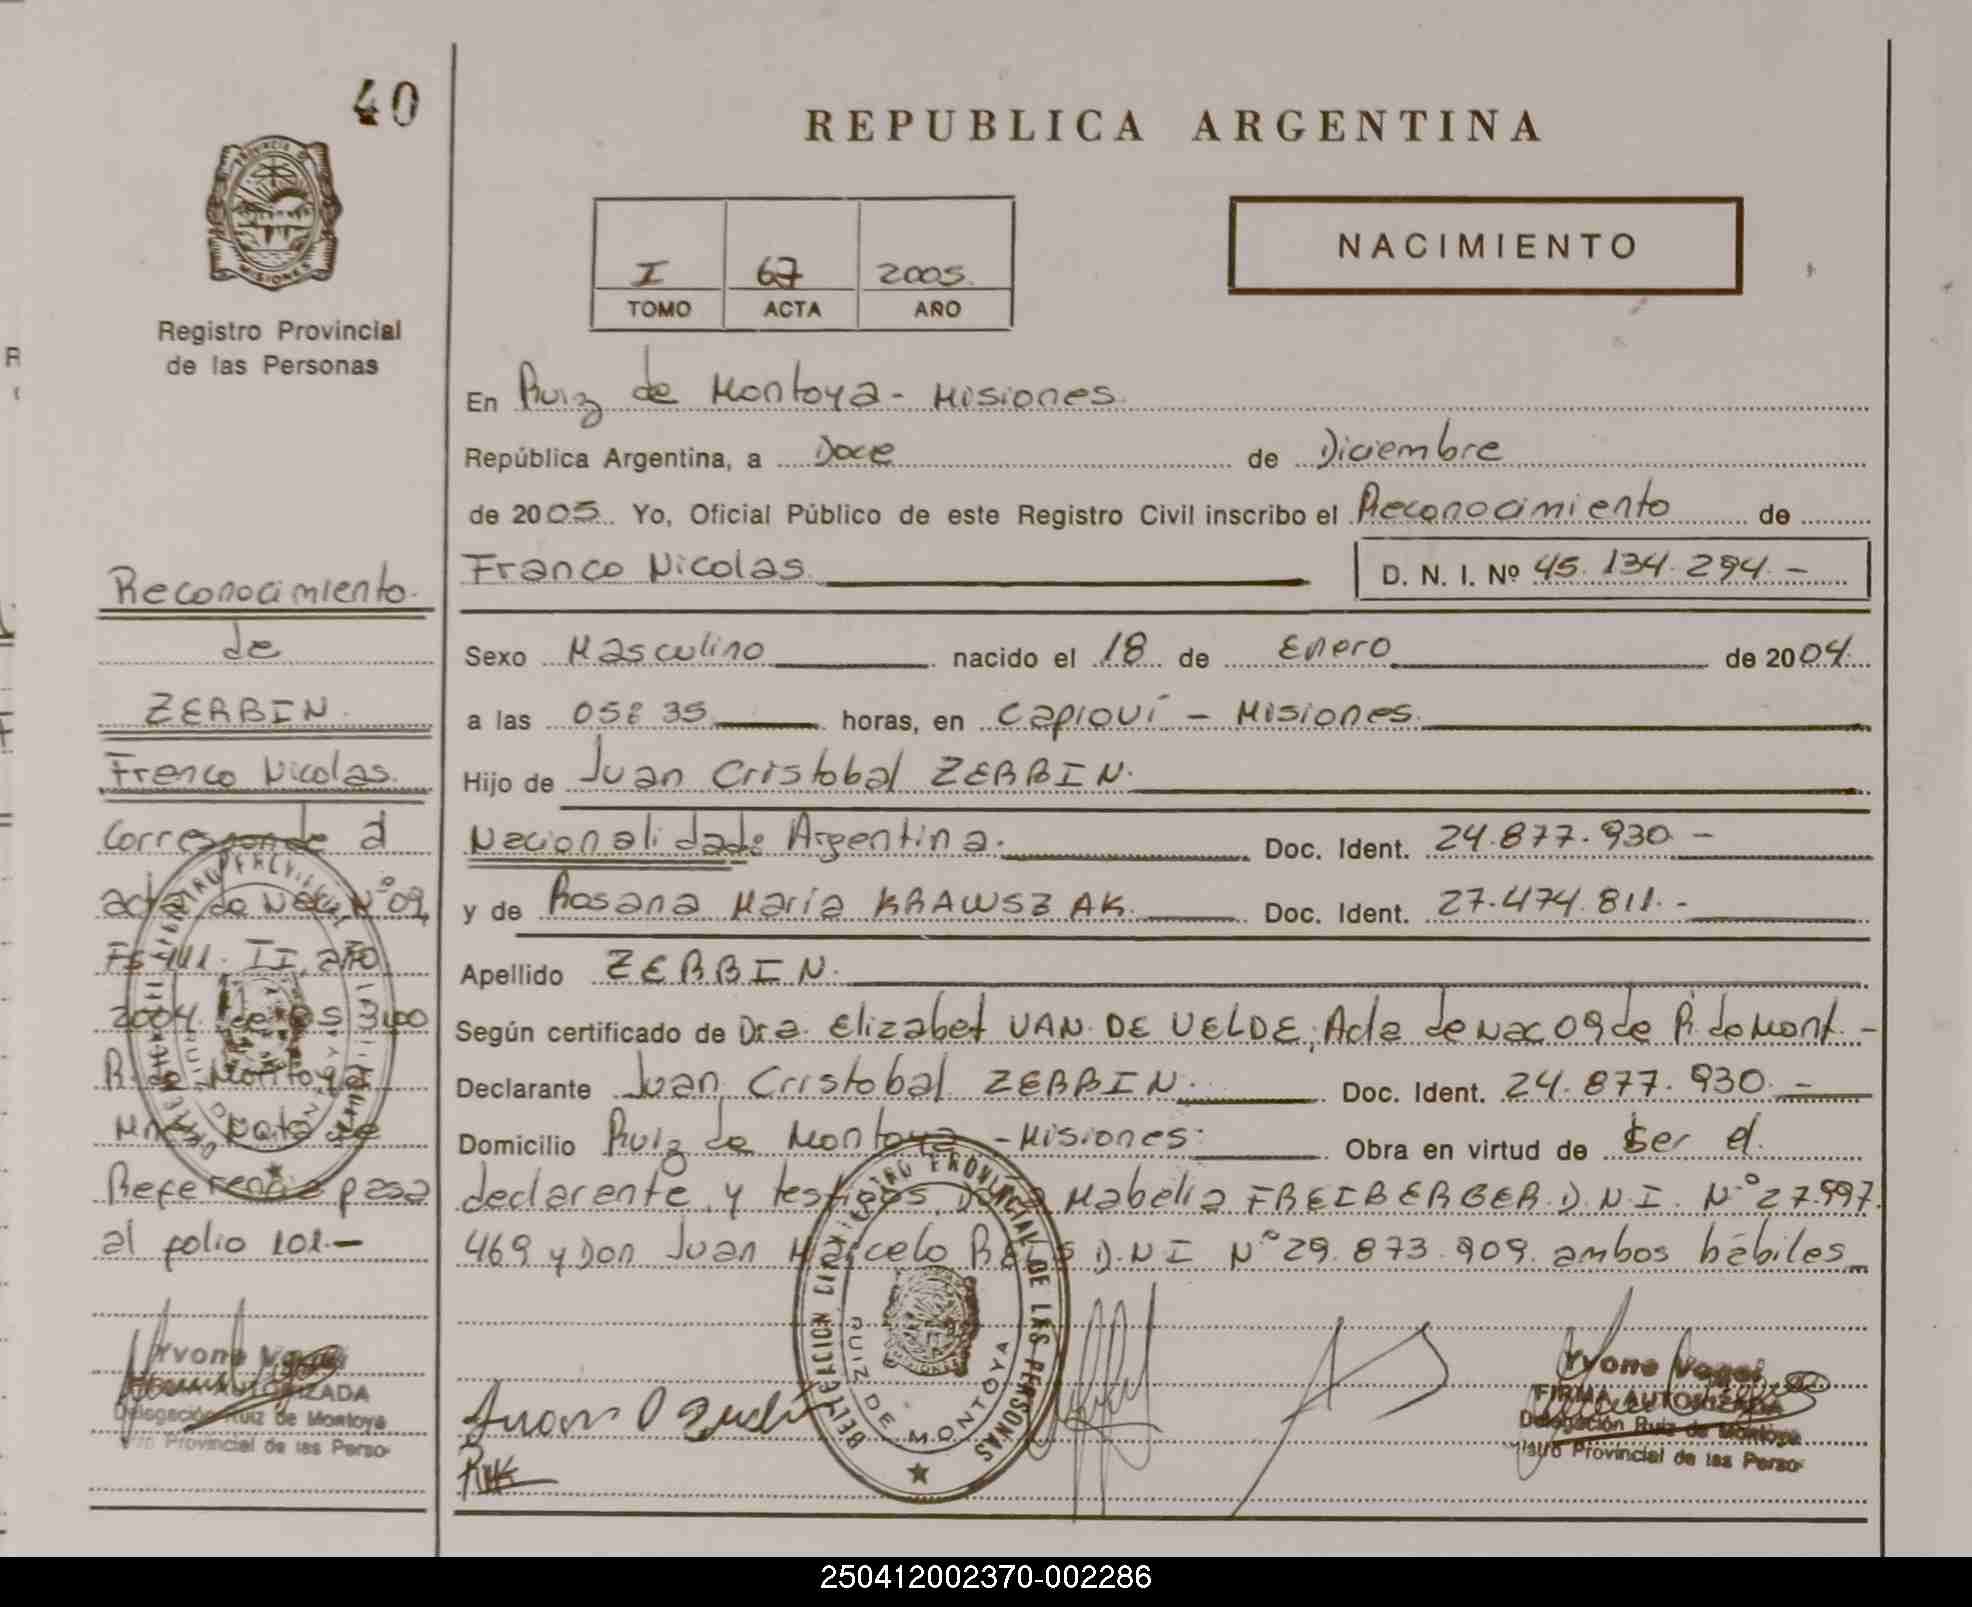 40
PROVINCIA D
MISIONES
Registro Provincial
de las Personas
Reconocimiento.
de
ZERBIN.
Franco Nicolas.
Corresponde a
acta de Nac. Nº 09,
II, año
2004. de
R. de Montoya
Mnes
Referencia pasa
al folio 101.-
Yvone
FIRMA AUTORIZADA
Delegación Ruiz de Montoya
Provincial de las Perso
REPUBLICA ARGENTINA
I 67 2005.
TOMO ACTA AÑO
NACIMIENTO
En Ruiz de Montoya - Misiones.
República Argentina, a Doce de Diciembre
de 2005. Yo, Oficial Público de este Registro Civil inscribo el Reconocimiento de
Franco Nicolas. D. N. I. Nº 45.134.294.-
Sexo Masculino nacido el 18 de Enero de 2004.
a las 05:35 horas, en Capioví - Misiones.
Hijo de Juan Cristobal ZERBIN.
Nacionalidad: Argentina. Doc. Ident. 24.877.930.-
y de Rosana Maria KRAWSZAK. Doc. Ident. 27.474.811.-
Apellido ZERBIN.
Según certificado de Dra. Elizabet VAN DE VELDE, Acta de Nac 09 de R. de Mont.-
Declarante Juan Cristobal ZERBIN. Doc. Ident. 24.877.930.-
Domicilio Ruiz de Montoya - Misiones: Obra en virtud de Ser el
declarante y testigos, Mabelia FREIBERGER. D.N.I. Nº 27.997.
469 y Don Juan Marcelo D.N.I Nº 29.873.909. ambos hábiles
DELEGACION REGISTRO PROVINCIAL DE LAS PERSONAS
RUIZ DE MONTOYA
Yvone
FIRMA AUTORIZADA
Delegación Ruiz de Montoya
Provincial de las Perso
250412002370-002286